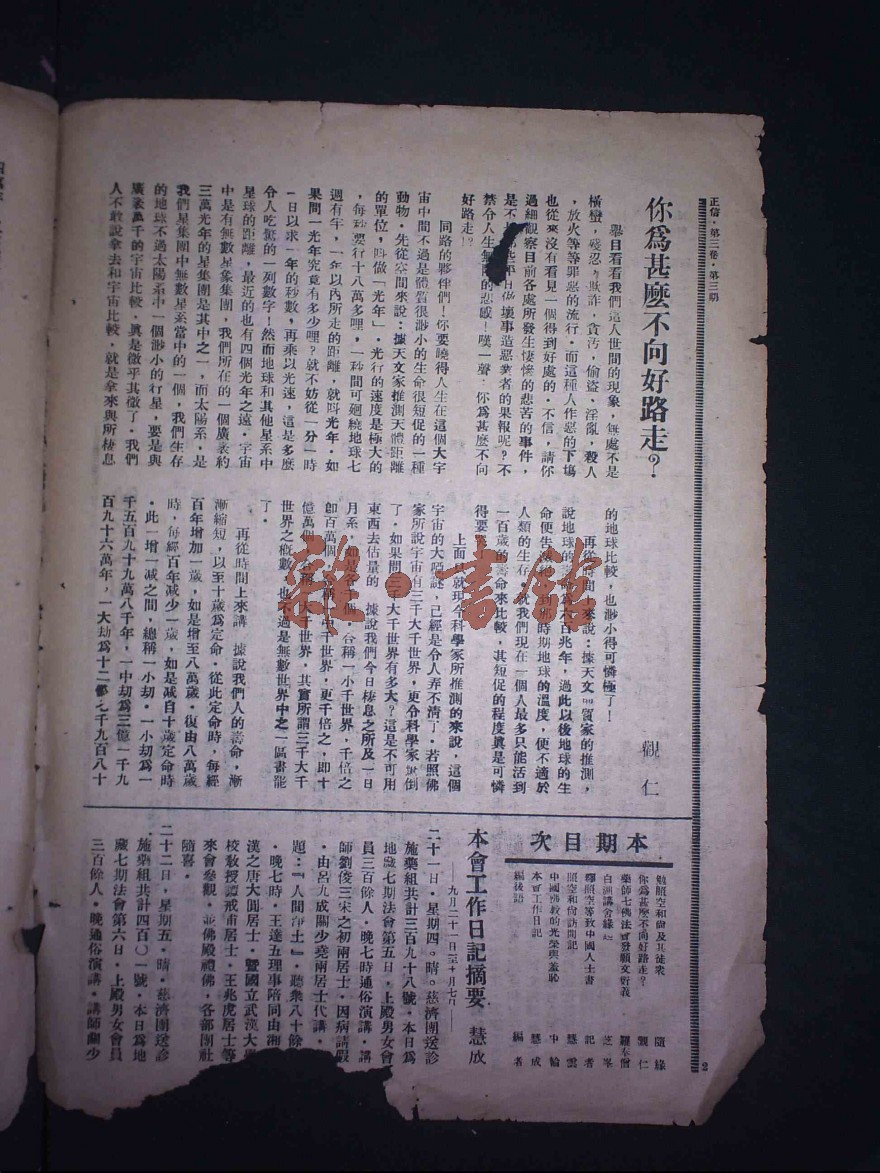 正信・第三卷・第三期
2
你爲甚麽不向好路走？
觀仁
舉目看看我們這人世間的現象，無處不是
橫蠻，殘忍，欺詐，貪汚，偷盜，淫亂，殺人
，放火等等罪惡的流行・而這種人作惡的下塲
也從來沒有看見一個得到好處的・不信，請你
過細觀察目前各處所發生悽慘的悲苦的事件，
是不 些平日做壞事造惡業者的果報呢？不
禁令人生無 的悲感！嘆一聲・你爲甚麽不向
好路走！
同路的夥伴們！你要曉得人生在這個大宇
宙中間不過是體質很渺小的生命很短促的一種
動物・先從空間來說：據天文家推測天體距離
的單位，叫做「光年」・光行的速度是極大的
，每秒要行十八萬多哩，一秒間可廻繞地球七
週有半，一年以內所走的距離，就叫光年・如
果問一光年究竟有多少哩？就不妨從一分一時
一日以求一年的秒數，再乘以光速，這是多麽
令人吃驚的一列數字！然而地球和其他星系中
星球的距離，最近的也有四個光年之遠・宇宙
中是有無數星象集團，我們所在的一個廣袤約
三萬光年的星集團是其中之一，而太陽系，是
我們星集團中無數星系當中的一個，我們生存
的地球不過太陽系中一個渺小的行星，要是與
廣袤萬千的宇宙比較，眞是微乎其微了・我們
人不敢說拿去和宇宙比較，就是拿來與所棲息
的地球比較，也渺小得可憐極了！
再從時間上來說：據天文 質家的推測，
說地球的壽命爲六百兆年，過此以後地球的生
命便告 到那時期地球的溫度，便不適於
人類的生存 就我們現在一個人最多只能活到
一百歲的壽命來比較，其短促的程度眞是可憐
得要
上面 就現今科學家所推測的來說，這個
宇宙的大啞謎，已經是令人弄不清了・若照佛
家所說宇宙有三千大千世界，更令科學家 倒
了・如果問三千大千世界有多大？這是不可用
東西去估量的 據說我們今日棲息之所及一日
月系，如是者千個，合稱一小千世界，千倍之
卽百萬個 稱一中千世界，更千倍之，卽十
億萬個 合稱一大千世界，其實所謂三千大千
世界之槪數，也不過是無數世界中之一區畫罷
了・
再從時間上來講 據說我們人的壽命，漸
漸縮短，以至十歲爲定命・從此定命時，每經
百年增加一歲，如是增至八萬歲・復由八萬歲
時，每經百年減少一歲，如是減自十歲定命時
・此一增一減之間，總稱一小刼・一小刼爲一
千五百九十九萬八千年，一中刼爲三億一千九
百九十六萬年，一大刼爲十二 七千九百八十
本期目次
勉照空和尙及其徒衆 隨緣
你爲甚麽不向好路走？ 觀仁
藥師七佛法會發願文衍義 羅奉僧
白湖講舍緣起 芝峯
釋照空等致中國人士書 記者
照空和尙訪問記 慧雲
中國佛敎的光榮與羞恥 中輪
本會工作日記 慧成
編後語 編者
本會工作日記摘要 慧成
——九月二十一日至十月七日——
二十一日・星期四。晴。慈濟團送診
施藥組共計三百九十八號・本日爲
地藏七期法會第五日，上殿男女會
員三百餘人・晚七時通俗演講・講
師劉俊三宋之初兩居士，因病請假
・由呂九成關少堯兩居士代講・
題：『人間淨土』・聽衆八十餘
・晚七時・王達五理事陪同由湘
漢之唐大圓居士，暨國立武漢大
校敎授譚戒甫居士，王兆虎居士等
來會參觀，並佛殿禮佛，各部團社
隨喜・
二十二日，星期五・晴・慈濟團送診
・施藥組共計四百〇一號・本日爲地
藏七期法會第六日・上殿男女會員
三百餘人・晚通俗演講・講師關少
雜·書館